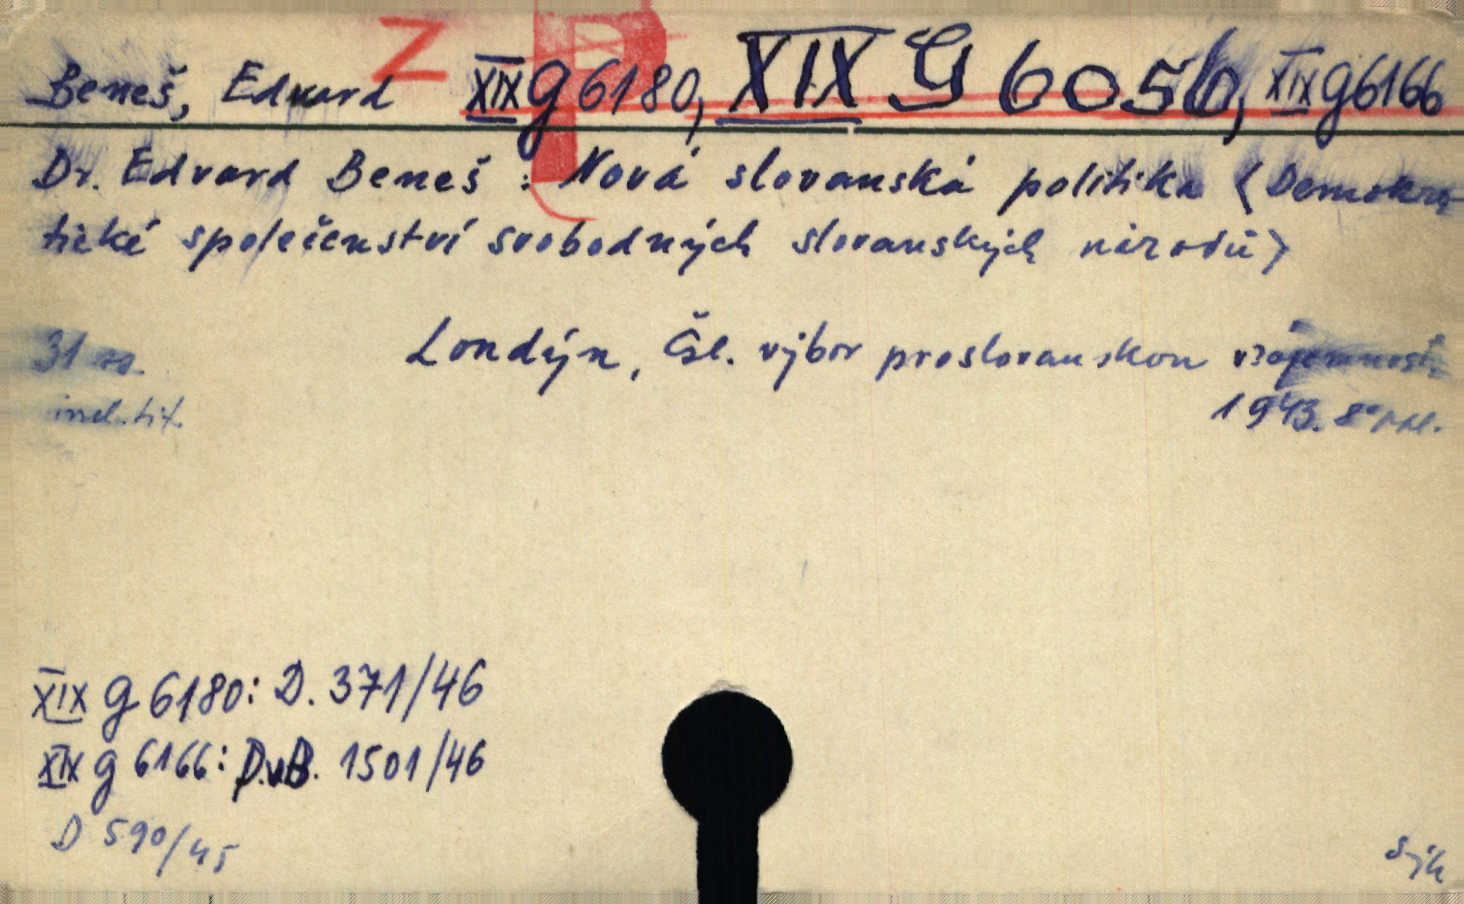 Z P
Beneš, Edvard XIX g 6180, XIX G 6056, XIX g 6166
Dr. Edvard Beneš: Nová slovanská politika (Demokra-
tické společenství svobodných slovanských národů)
31 ss. Londýn, Čsl. výbor pro slovanskou vzájemnost
incl. tit. 1943. 8°
XIX g 6180: D. 371/46
XIX g 6166: D.v.B. 1501/46
D 590/45